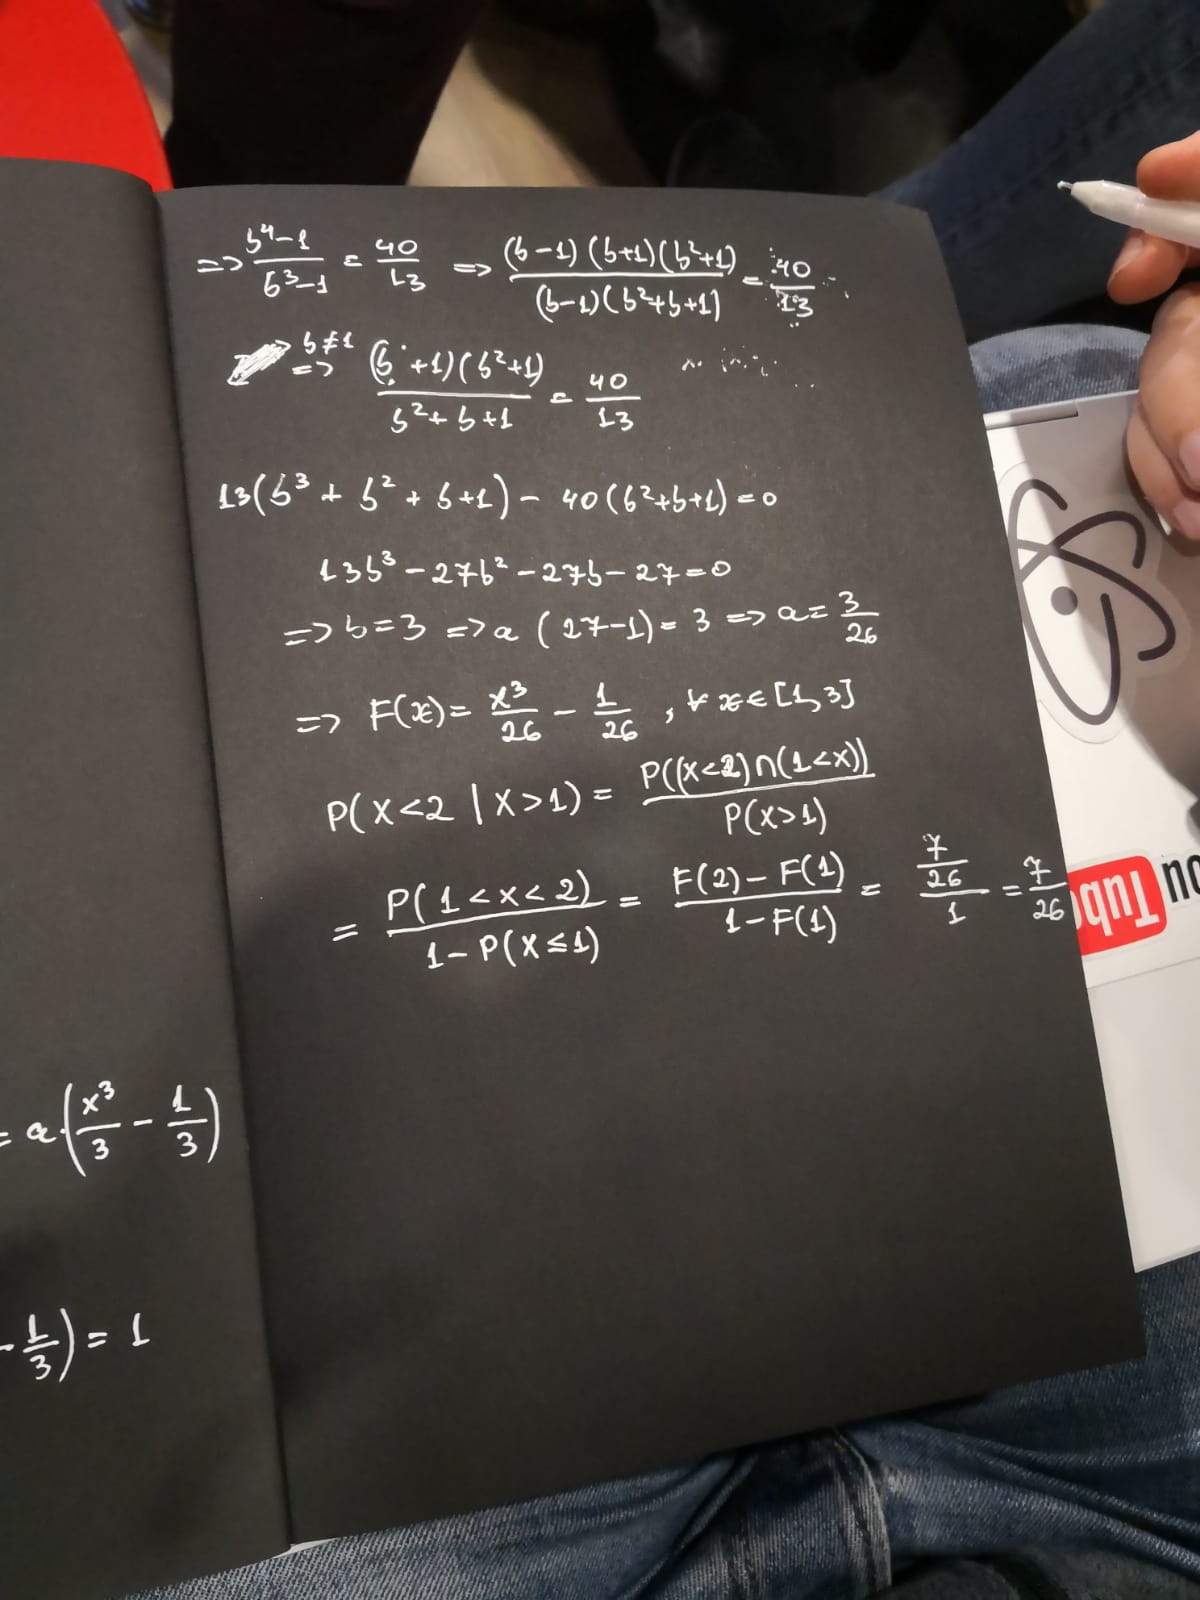 => b⁴-1/b³-1 = 40/13 => (b-1)(b+1)(b²+1)/(b-1)(b²+b+1) = 40/13
b≠1 => (b+1)(b²+1)/b²+b+1 = 40/13
13(b³ + b² + b+1) - 40(b²+b+1) = 0
13b³ - 27b² - 27b - 27 = 0
=> b=3 => a (27-1) = 3 => a = 3/26
=> F(x) = x³/26 - 1/26 , ∀ x ∈ [1,3]
P(X<2 | X>1) = P((X<2)∩(1<X))/P(X>1)
= P(1<X<2)/1-P(X≤1) = F(2)-F(1)/1-F(1) = 7/26/1 = 7/26
= a·(x³/3 - 1/3)
- 1/3) = 1